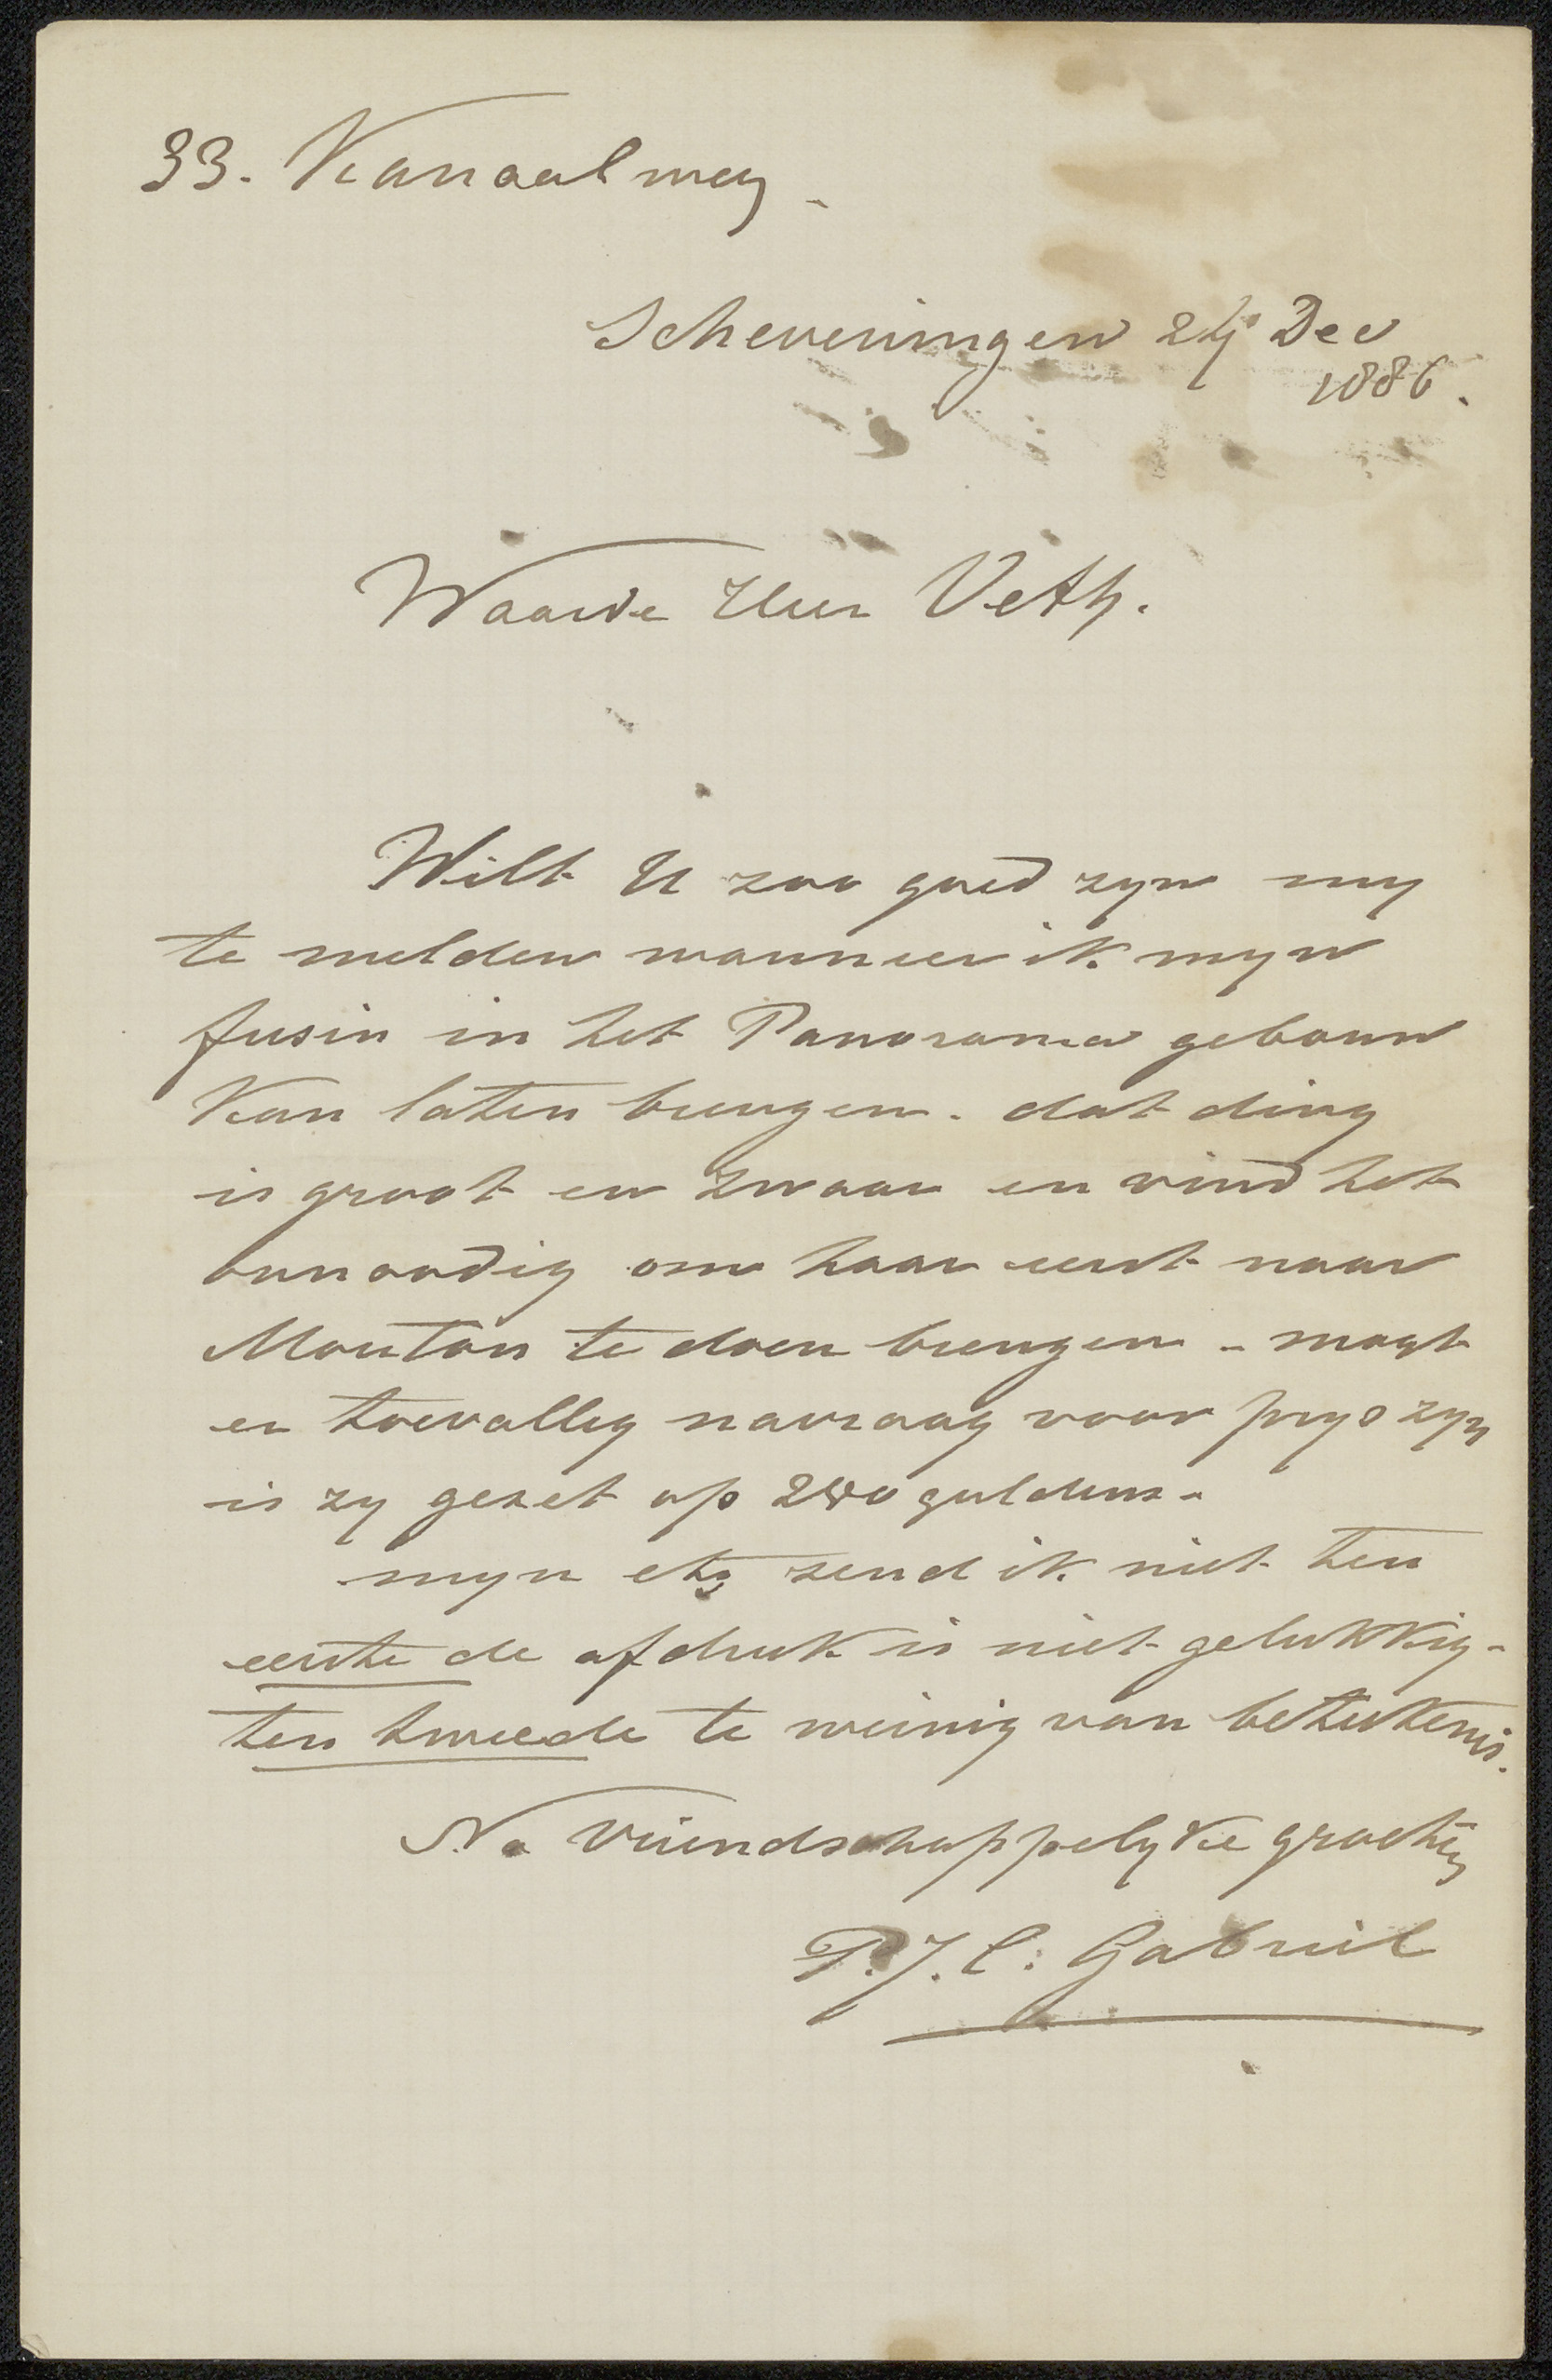 33. Kanaalweg.
Scheveningen 24 Dec
1886.
Waarde Heer Veth.
Wilt U zoo goed zyn my
te melden wanneer ik myn
fusin in het Panorama gebouw
kan laten brengen. dat ding
is groot en zwaar en vind het
onnoodig om haar eerst naar
Mouton te doen brengen - mogt
er toevallig navraag voor prys zyn
is zy gezet op guldens.
myn ets zend ik niet ten
eerste de afdruk is niet gelukkig -
ten tweede te weinig van betekenis.
Na vriendschappelyke groeten
P.J.C. Gabriël